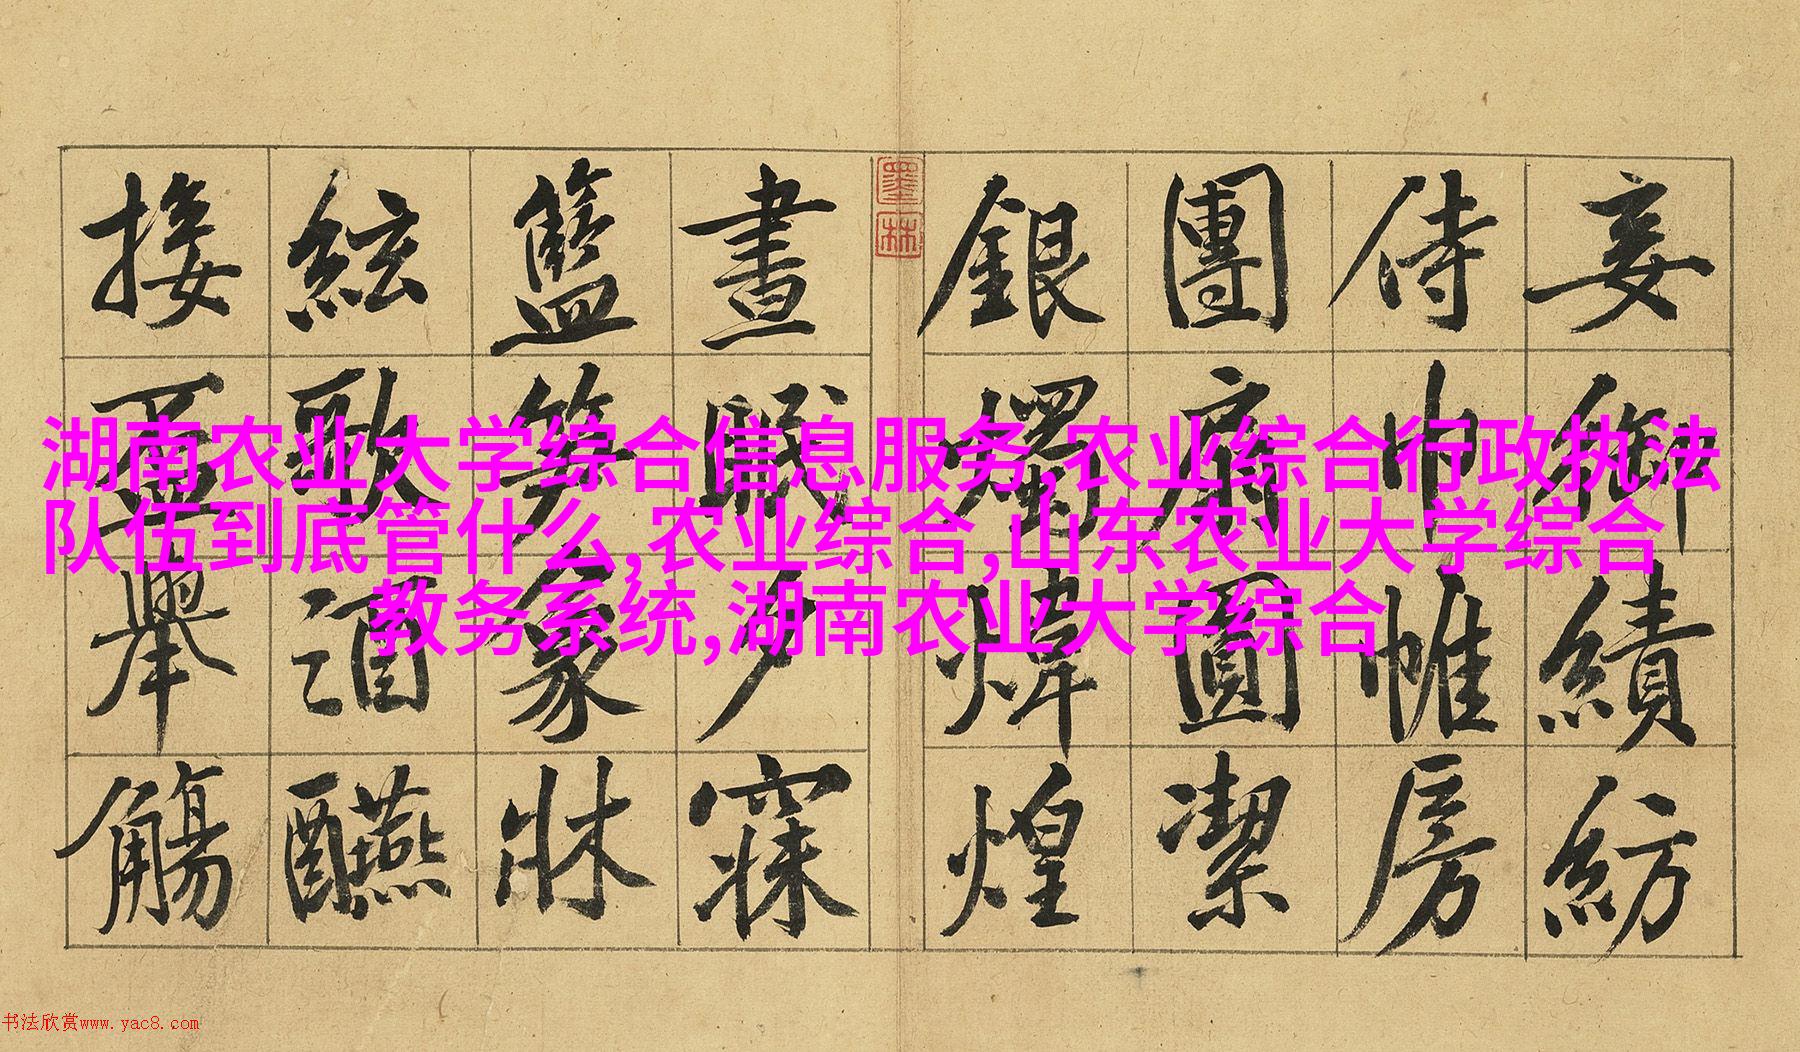 妾御績紡
侍巾帷房
團扇圓潔
銀燭煒煌
墨林
晝眠夕寐
籃笋象牀
絃歌酒醼
接盃舉觴
湖南农业大学综合信息服务,农业综合行政执法
队伍到底管什么,农业综合,山东农业大学综合
教务系统,湖南农业大学综合
书法欣赏www.yac8.com